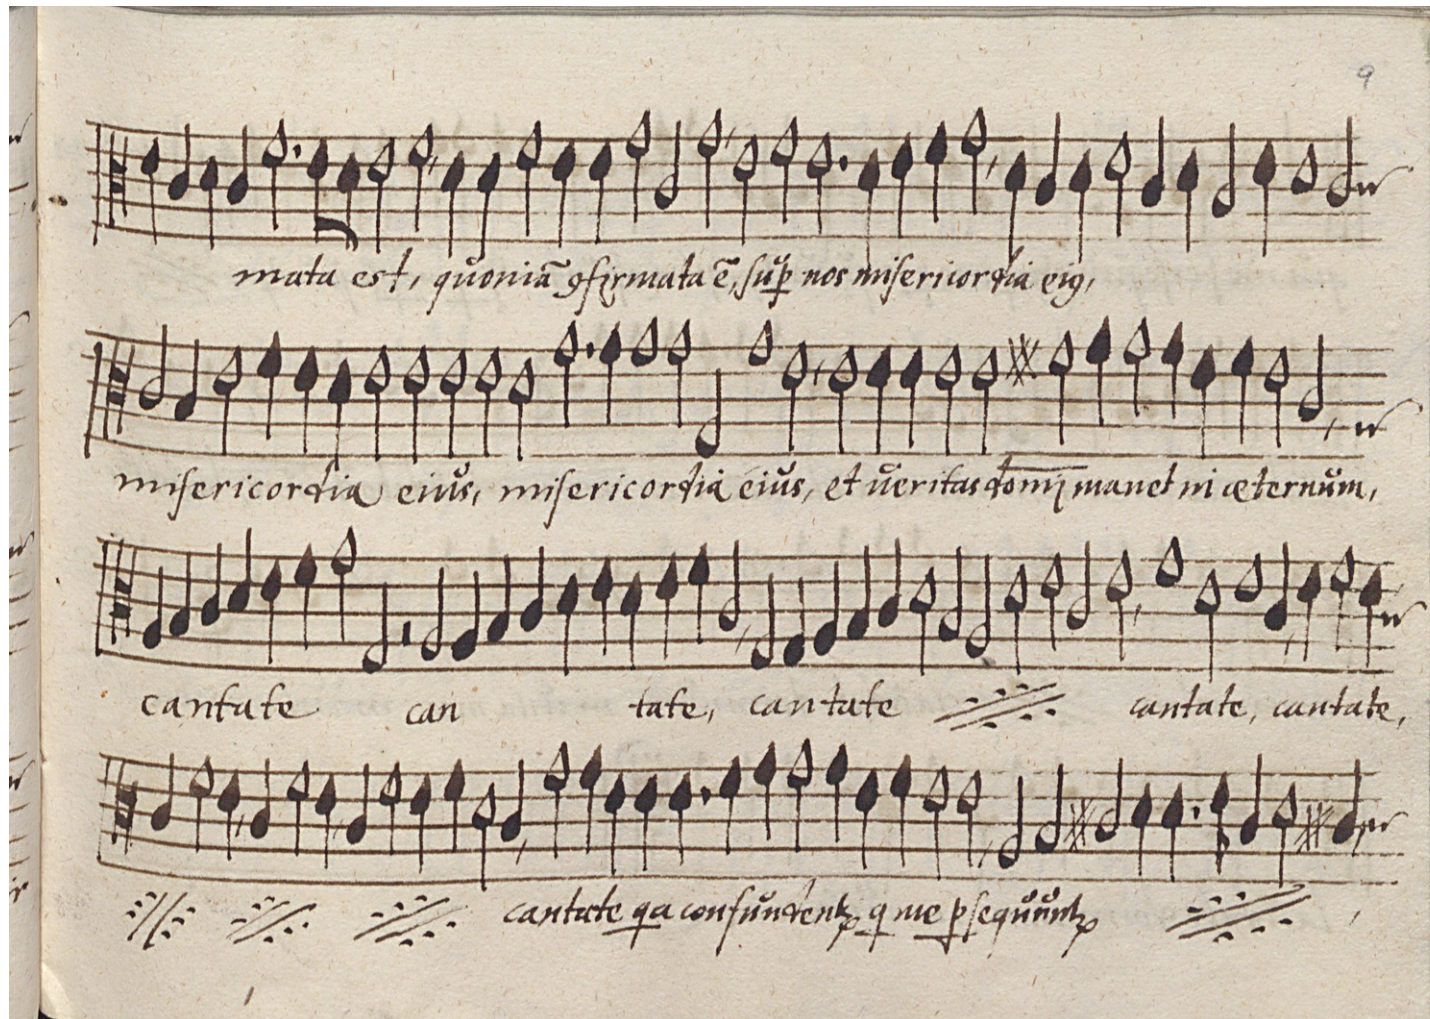 9
mata est, quoniã ꝯfirmata ẽ, sup̱ nos misericordia eiꝰ,
misericordia eius, misericordia eius, et ueritas domĩ manet in æternum,
cantate can tate, cantate cantate, cantate,
cantate qa confundentꝝ q me p̱sequuntꝝ